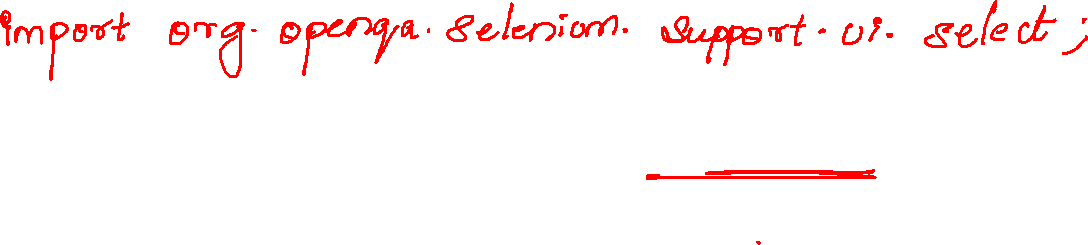 import org. openqa. selenium. support. ui. select;